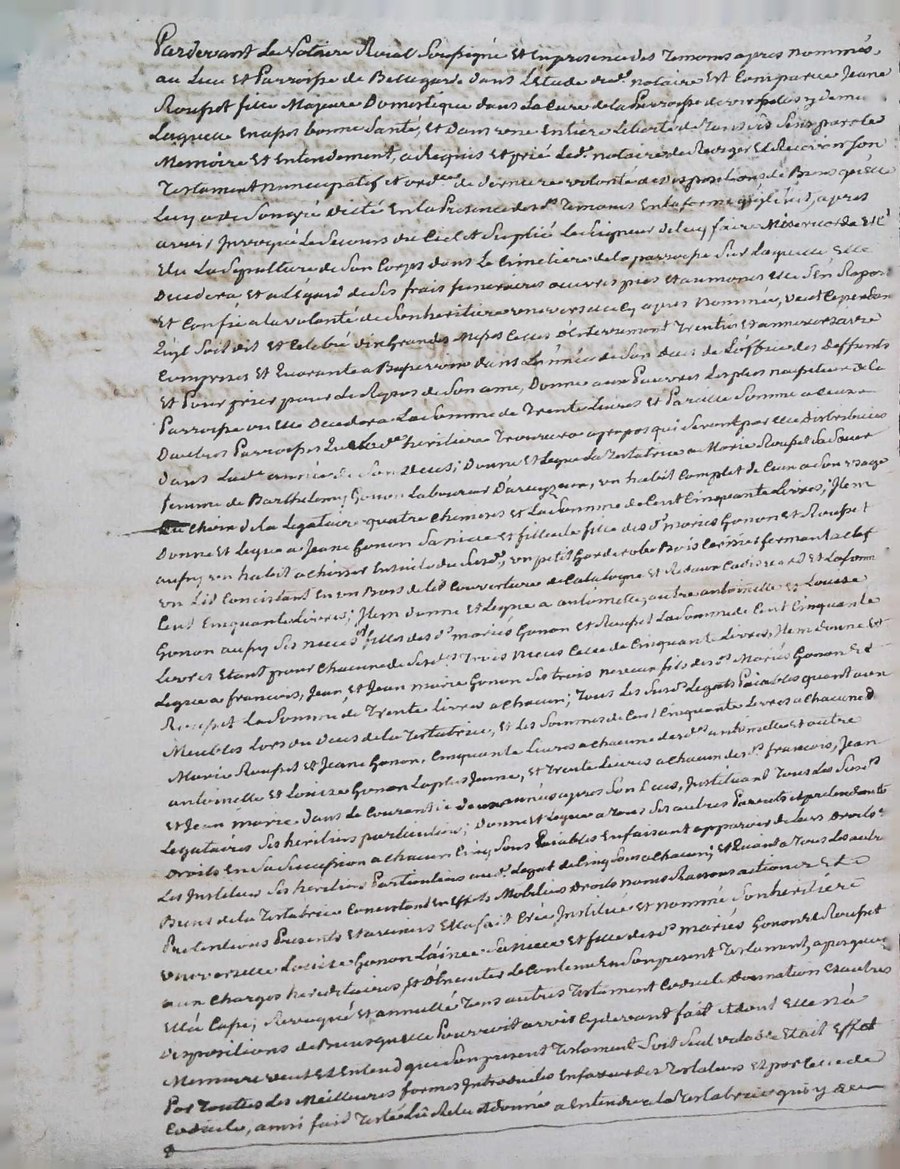 Pardevant Le Notaire Royal Soussigné Et En presence des Temoins apres Nommés,
au Lieu et Parroisse de Bellegarde dans L'étude dud. notaire Est Comparue Jeane
Roupet fille Majeure Domestique dans La Cure de la Parroisse de
Laquelle En a bonne Santé, et dans une Entiere Liberté de Ses parole
Memoire Et Entendement, a Requis Et prié Led. notaire de Rediger Et Recevoir Son
Testament nuncupatif Et de derniere volonté de disposition de Biens qu'elle
Luy a de Son gré dicté En la Presence desd. Temoins En la forme qu'il suit, apres
avoir Invoqué Le Secours du Ciel et Suplié Le Seigneur de luy faire Misericorde Et
Elu La Sepulture de Son Corps dans Le Cimetiere de la parroisse Sur Laquelle Elle
Decedera Et a L'égard de Ses frais funeraires œuvres pies Et aumones Elle S'en Repose
Et Confie a la volonté de Son heritiere universelle Cy apres Nommée, veut Cependant
qu'il Soit dit et Celebré vingt grandes Messes Celles d'Enterrement Trentin Et anniversaire
Comprises Et Quarante a Basse voix dans L'année de Son deces de L'office des Deffunts
Et Pour prier pour Le Repos de Son ame, Donne aux Pauvres Les plus necessiteux de la
Parroisse ou Elle Decedera La Somme de Trente Livres Et Pareille Somme a Ceux
D'autres Parroisses Que Lad. heritiere Trouvera apropos qui Seront par Elle distribuées
Dans Lad. année de Son Deces; Donne Et Legue La Testatrice a Marie Roupet Sa Sœur
femme de Barthelemy Gonon Laboureur D'aveyzieu, un habit Complet de Ceux a Son usage
Au Choix de la Legataire quatre Chemises et La Somme de Cent Cinquante Livres; Item
Donne Et Legue a Jeane Gonon Sa niece et filleule fille desd. mariés Gonon et Roupet
aussy un habit a choisir Ensuite du Susd., un petit Garderobe Bois Cerisier fermant a Clef
un Lid Concistant En un Bois de Lid Couverture de Catalogne Et Et La Somme
Cent Cinquante Livres; Item donne Et Legue a antoinette, autre antoinette Et Louise
Gonon aussy Ses nieces filles desd. mariés Gonon et Roupet La Somme de Cent Cinquante
Livres Etant pour Chacune de Sesd. Trois nieces Celle de Cinquante Livres, Item donne Et
Legue a francois, Jean, Et Jean marie Gonon Ses trois neveux fils desd. Mariés Gonon Et
Roupet La Somme de Trente Livres a Chacun; Tous Les Susd. Legats Paiables quant aux
Meubles Lors du Deces de la Testatrice, Et Les Sommes de Cent Cinquante Livres a Chacune de
Marie Roupet Et Jeane Gonon, Cinquante Livres a Chacune desd. antoinette et autre
antoinette Et Louise Gonon La plus Jeune, Et Trente Livres a Chacun desd. francois, Jean
Et Jean marie Dans Le Courant de deux années apres Son Deces, Instituant Tous Les Susd.
Legataires Ses heritiers particuliers; Donne Et Legue a Tous Ses autres Parents Et pretendants
Droits En Sa Succession a Chacun Cinq Sous Paiables En faisant apparoir de Leurs Droits
Les Institue Ses heritiers Particuliers aud. Legat de Cinq Sous a Chacun; Et Quand a Tous Les autres
Biens de la Testatrice Concistant En Effets Mobiliers Droits noms Raisons actions Et
Pretentions Presents Et avenirs Elle a fait Créé Institué Et nommé Son heritiere
universelle Louise Gonon L'ainée Sa niece Et fille desd. mariés Gonon Et Roupet
aux Charges hereditaires, Et D'Executer Le Contenu En Son present Testament, apres quoy
Ella Cassé, Revoqué Et annullé Tous autres Testament Codicile Donnation Et autres
Dispositions de Biens qu'elle Pourroit avoir Cy devant fait Et dont Elle n'a
Memoire veut Et Entend que Son present Testament Soit Seul valable Et ait Effet
Par Toutes Les Meilleures formes Introduites En faveur des Testateurs Et par Celle de
Codicile, ainsi fait Testé Lû Relu Et donné a Entendre a la Testatrice qui y a